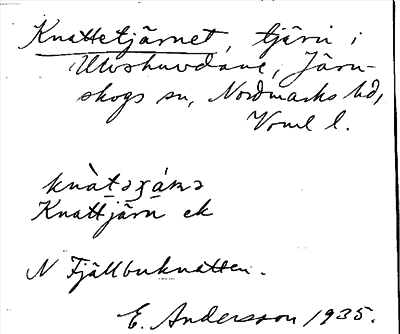 Knattetjärnet, tjärn i
Järn-
skogs sn, Nordmarks hd,
Vrml l.
Knattjärn ek
N Fjällbuknatten.
E. Andersson 1935.